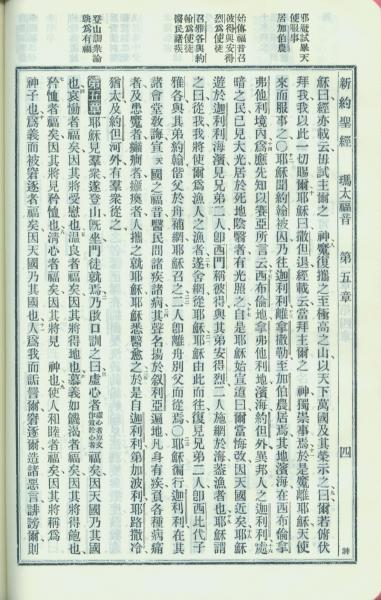 新約聖經 瑪太福音 第五章 四
邪惡試畢天
使服事
居加伯農
始傳福音召
彼得與安得
烈爲使徒
召雅各與約
翰爲使徒
醫民諸疾
登山訓衆論
孰爲有福
穌曰經亦載云毋試主爾之 神魔復攜之至極高之山以天下萬國及其榮示之曰爾若俯伏
拜我我以此一切賜爾耶穌曰撒但退經載云當拜主爾之 神獨崇事焉於是魔離耶穌天使
來而服事之〇耶穌聞約翰被囚乃往迦利利離拿撒勒至加伯農居焉其地濱海在西布倫拿
弗他利境內爲應先知以賽亞所言云西布倫地拿弗他利地濱海約但外異邦人之迦利利處
暗之民已見大光居於死地陰翳者有光照之自是耶穌始宣道曰爾當悔改因天國近矣耶穌
遊於迦利利海濱見兄弟二人卽西門稱彼得與其弟安得烈二人施網於海蓋漁者也耶穌謂
之曰從我我將使爾爲漁人之漁者遂舍網從耶穌耶穌由此而往復見兄弟二人卽西比代子
雅各與其弟約翰偕父於舟補網耶穌召之二人卽離舟別父而從焉〇耶穌徧行迦利利在其
諸會堂教誨宣天國之福音醫民間諸疾諸病其聲名揚於叙利亞遍地凡身有疾負各種病痛
者及患魔者癲癇者癱瘓者人攜之就耶穌耶穌悉醫愈之於是自迦利利第加波利耶路撒冷
猶太及約但河外有羣衆從之
第五章 耶穌見羣衆遂登山旣坐門徒就焉乃啟口訓之曰虛心者虛心者原文作貧於心者福矣因天國乃其國
也哀慟者福矣因其將受慰也溫良者福矣因其將得地也慕義如饑渴者福矣因其將得飽也
矜恤者福矣因其將見矜恤也清心者福矣因其將見 神也使人和睦者福矣因其將稱爲
神子也爲義而被窘逐者福矣因天國乃其國也人爲我而詬詈爾窘逐爾造諸惡言誹謗爾則